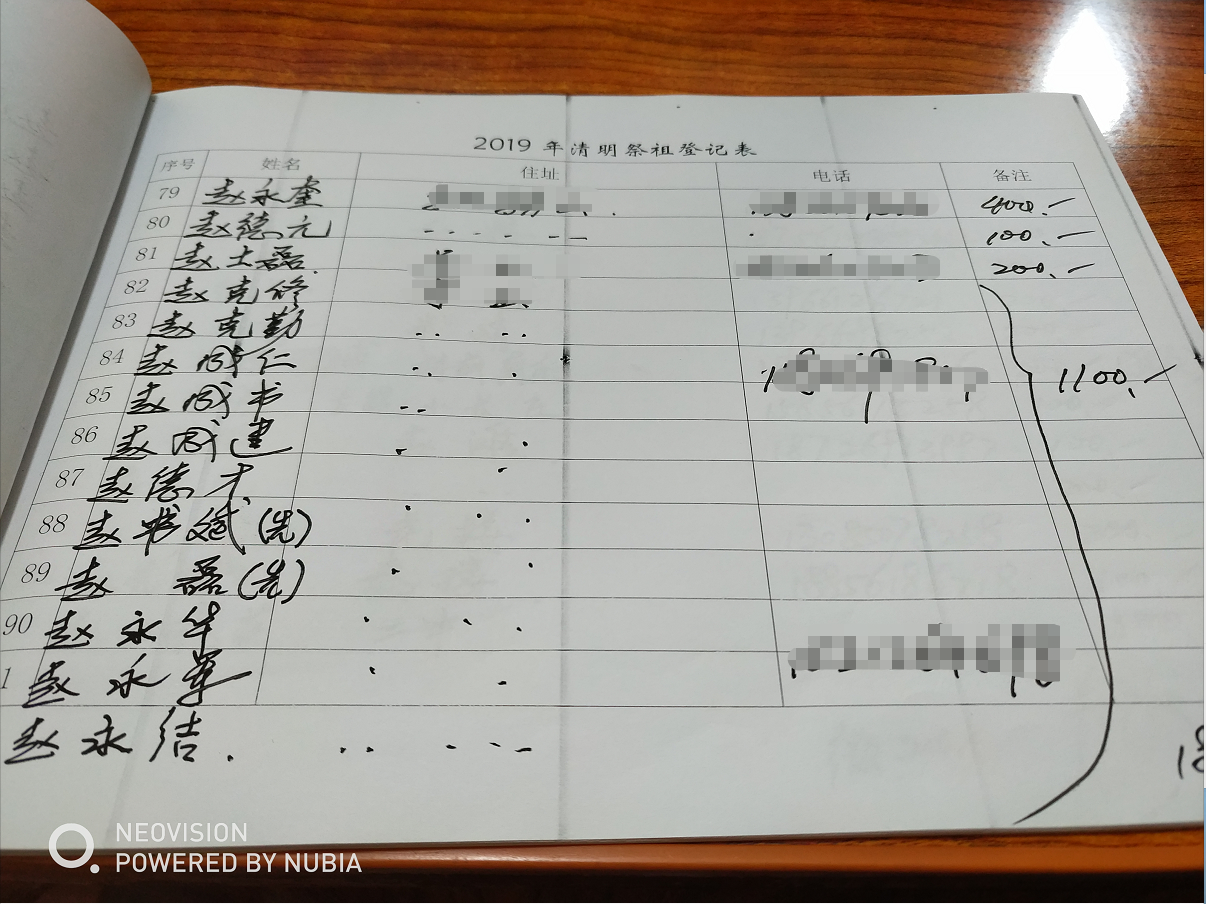 2019年清明祭祖登记表
序号 姓名 住址 电话 备注
79 赵永奎 400.-
80 赵德元 100.-
81 赵士磊. 200.-
82 赵克修
83 赵克勤
84 赵成仁 1100.-
85 赵成书
86 赵成建
87 赵德才
88 赵书斌(先)
89 赵磊(先)
90 赵永华
1 赵永军
赵永结.
18
NEOVISION
POWERED BY NUBIA